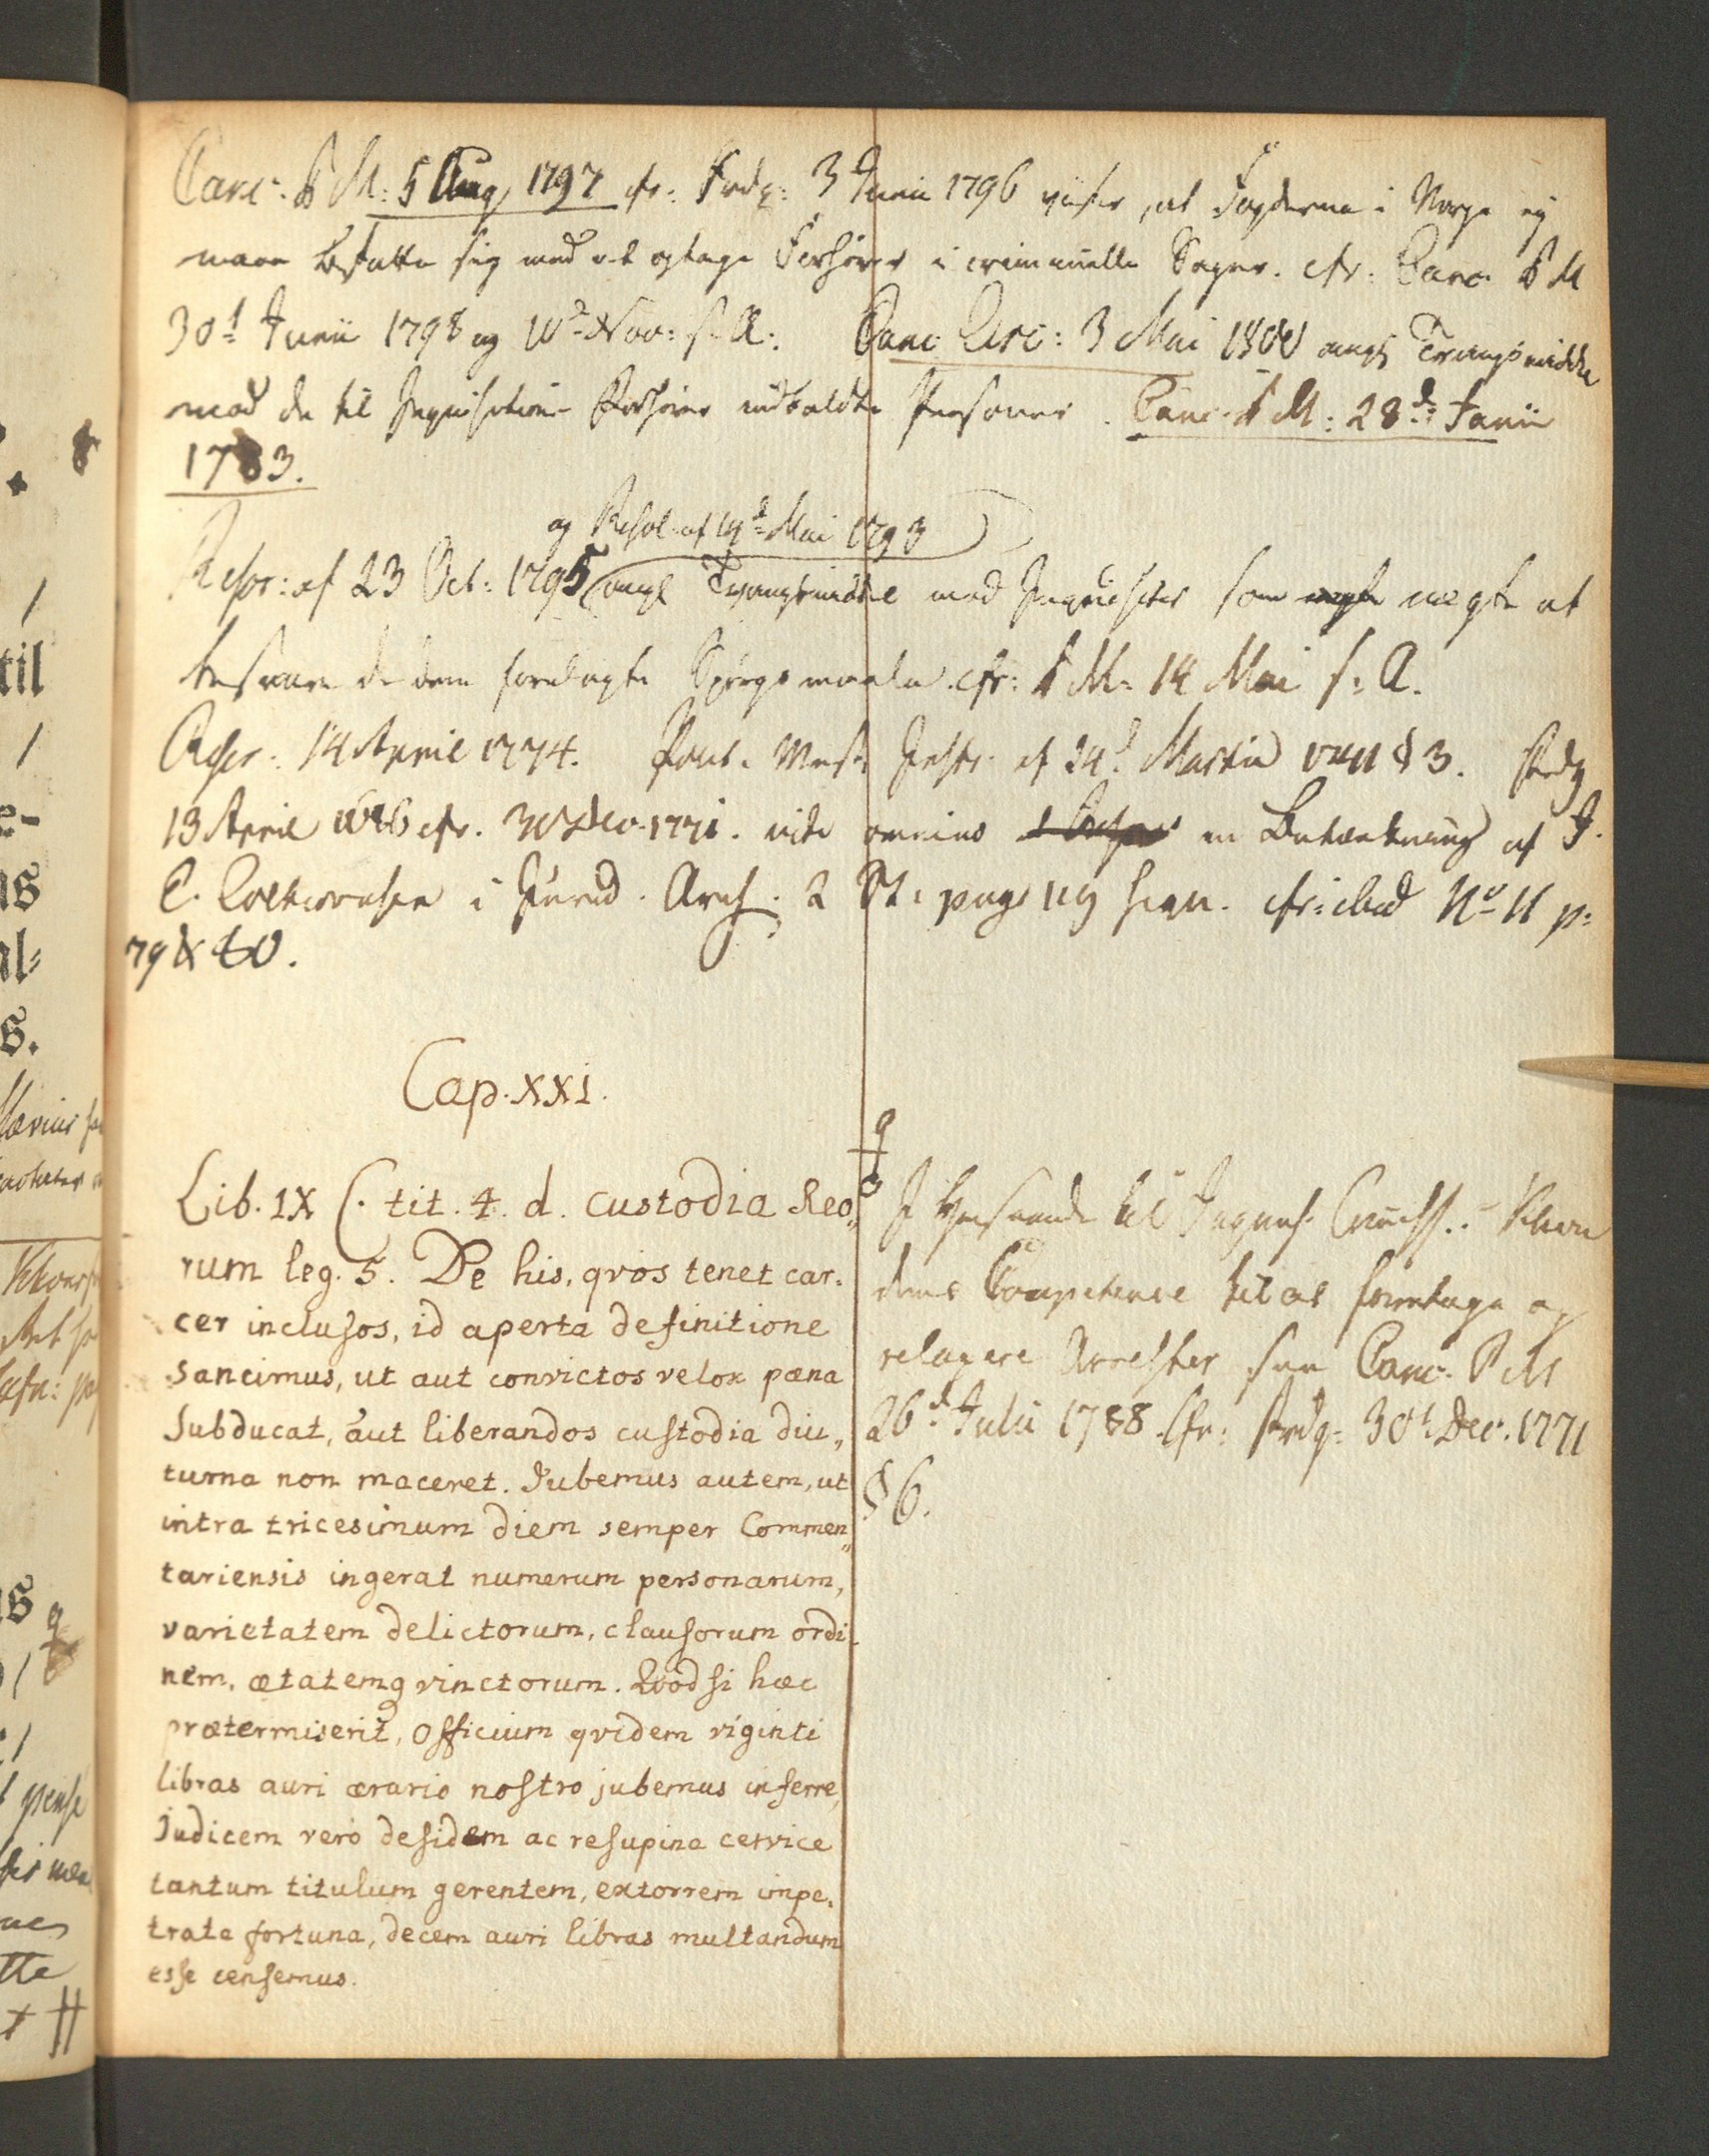 Canc. P M: 5 Aug 1797 cfr. Frdg: 3 Junii 1796 viser, at Fogderne i Norge ey
maae befatte sig med at optage Forhører i criminelle Sager. cfr: Canc. P M
30d Junii 1798 og 10d Nov: s. A. Canc. Circ: 3 Mai 1800 angl Tvangsmidler
mod de til Inqvisitions Forhører indkaldte Personer. Canc. P M: 28d Junii
1783.
og Resol. af 14d Mai 1793
Rescr: af 23 Oct: 1795 angl Tvangsmidle mod Inqvisiter som nægte at
besvare de dem forelagte Spørgsmaale. cfr: P M: 14 Mai s. A.
Rescr. 14 April 1774. Instr. af 24d Martii § 3. Frdg
13 April cfr. 30 Dec. 1771. vide omnino en Betænkning af J.
E. i Jurid. Arch. 2 St: pag. 119 seqv. cfr: ibid No 11 p:
79 &
Cap. XXI.
Lib. IX C. tit. 4. d. custodia Reo„
rum leg. 5. De his, qvos tenet car.
cer inclusos, id aperta definitione
sancimus, ut aut convictos velox pœna
subducat, aut liberandos custodia diu„
turna non maceret. Jubemus autem, ut
intra tricesimum diem semper Commen„
tariensis ingerat numerum personarum,
varietatem delictorum, clausorum ordi-
nem, ætatemq vinctorum. Qvod si hæc
prætermiserit, Officium qvidem viginti
libras auri ærario nostro jubemus inferre,
Judicem vero desidem ac resupina cervice
tantum titulum gerentem, extorrem impe„
trata fortuna, decem auri libras multandum
esse censemus.
I Henseende til Inqvis. Commiss.
dens Competence til at foretage og
relaxere Arrester see Canc. P M
26d Julii 1788. cfr: Frdg: 30d Dec. 1771
§ 6.